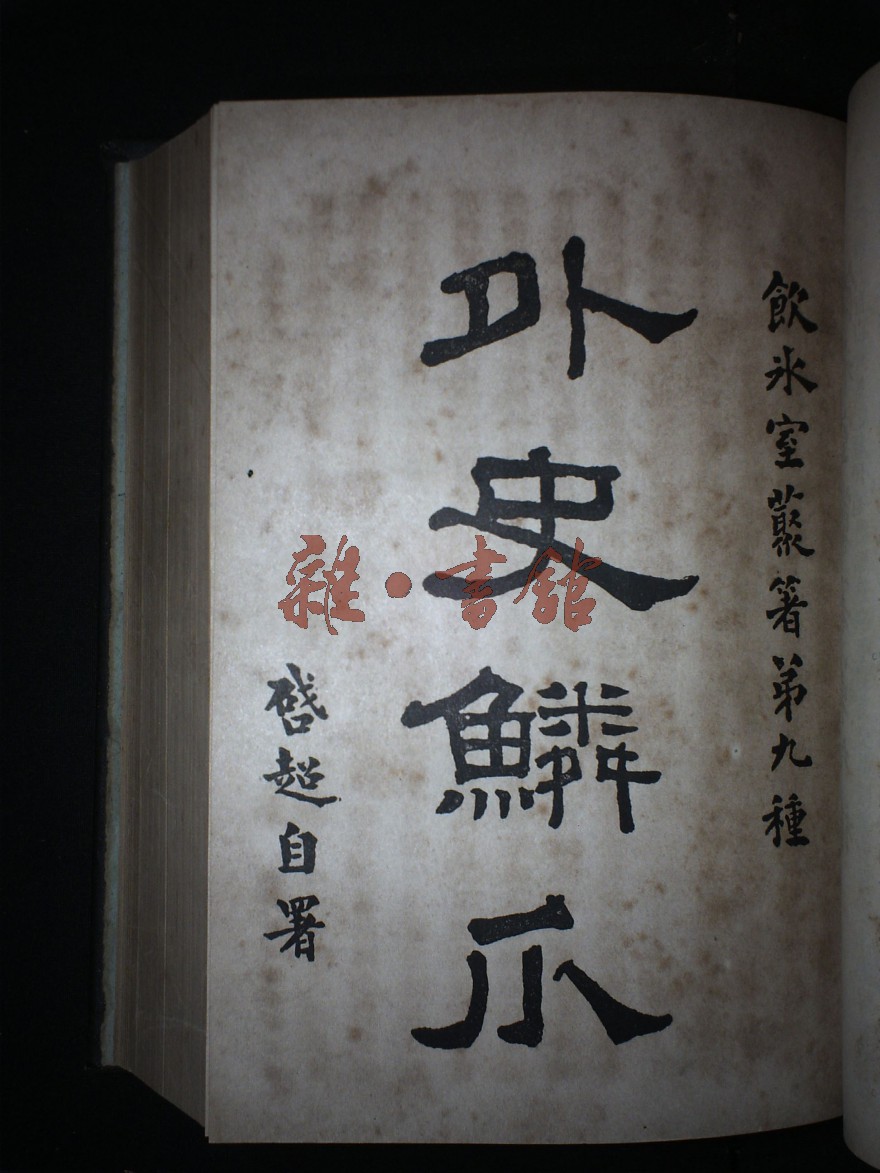 飲氷室叢著第九種
外史鱗爪
啓超自署
雜·書館